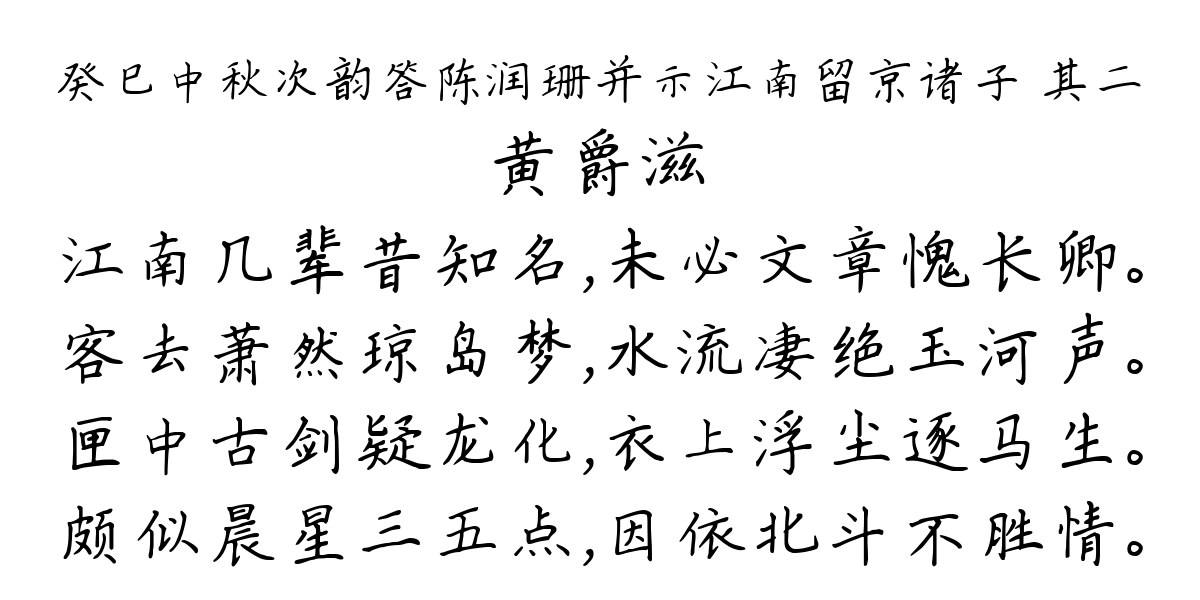 癸巳中秋次韵答陈润珊并示江南留京诸子 其二
黄爵滋
江南几辈昔知名,未必文章愧长卿。
客去萧然琼岛梦,水流凄绝玉河声。
匣中古剑疑龙化,衣上浮尘逐马生。
颇似晨星三五点,因依北斗不胜情。